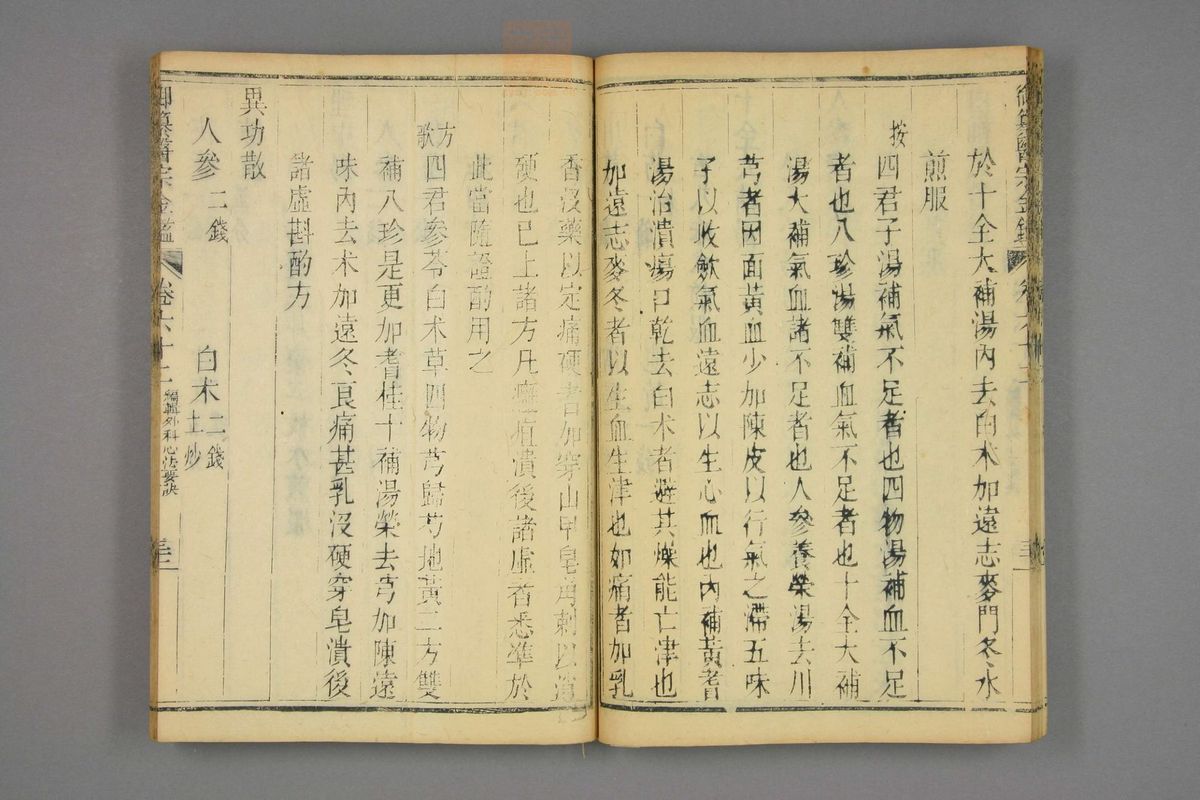 於十全大補湯內去白朮加遠志麥門冬水
煎服
按四君子湯補氣不足者也四物湯補血不足
者也八珍湯雙補血氣不足者也十全大補
湯大補氣血諸不足者也人參養榮湯去川
芎者因面黃血少加陳皮以行氣之滯五味
子以收斂氣血遠志以生心血也內補黃耆
湯治潰瘍口乾去白朮者避其燥能亡津也
加遠志麥冬者以生血生津也如痛者加乳
香沒藥以定痛硬者加穿山甲皂角刺以消
硬也已上諸方凡癰疽潰後諸虛者悉準於
此當隨證酌用之
方歌四君參苓白朮草四物芎歸芍地黃二方雙
補八珍是更加耆桂十補湯榮去芎加陳遠
味內去朮加遠冬良痛甚乳沒硬穿皂潰後
諸虛斟酌方
異功散
人參二錢　白朮二錢土炒
御纂醫宗金鑑　卷六十二　編輯外科心法要訣　三二